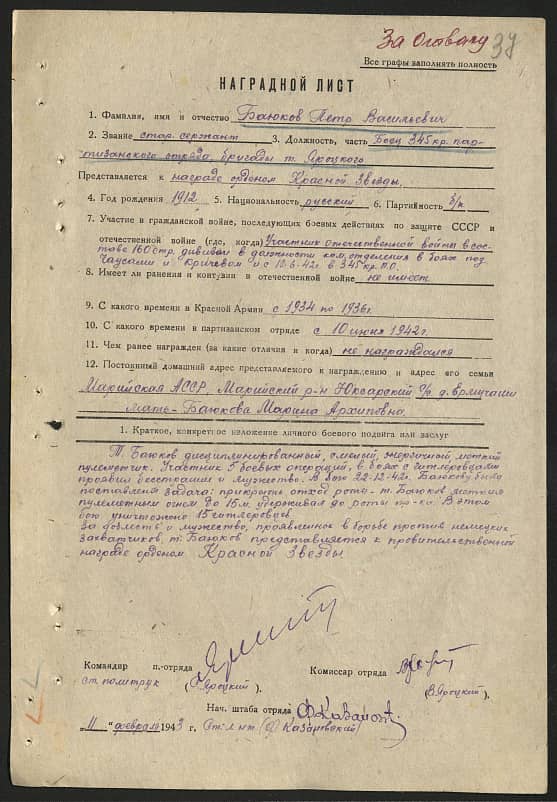 За Отвагу
37
Все графы заполнять полность
НАГРАДНОЙ ЛИСТ
1. Фамилия, имя и отчество Баюков Петр Васильевич
2. Звание стар. сержант 3. Должность, часть Боец 345 кр. пар-
тизанского отряда, бригады т. Яроцкого
Представляется к награде орденом Красной Звезды.
4. Год рождения 1912 5. Национальность русский 6. Партийность б/п
7. Участие в гражданской войне, последующих боевых действиях по защите СССР и
отечественной войне (где, когда) Участник отечественной войты в сос-
таве 160 стр. дивизии в должности ком. отделения в боях под
Чаусами и Кричевом и с 10.6-42г. в 345 кр. П.О.
8. Имеет ли ранения и контузии в отечественной войне не имеет
9. С какого времени в Красной Армии с 1934 по 1936г.
10. С какого времени в партизанском отряде с 10 июня 1942г.
11. Чем ранее награжден (за какие отличия и когда) не награждался
12. Постоянный домашний адрес представляемого к награждению и адрес его семьи
Марийская АССР, Марийский р-н Юксарский с/с д.
мать - Баюкова Марина Архиповна
1. Краткое, конкретное изложение личного боевого подвига или заслуг
Т. Баюков дисциплинированный, смелый, энергичный меткий
пулеметчик. Участник 5 боевых операций, в боях с гитлеровцами
проявил бесстрашие и мужество. В бою 22-12-42г. Баюкову была
поставлена задача: прикрыть отход роты - т. Баюков метким
пулеметным огнем до 15м. удерживал до роты пр-ка. В этом
бою уничтожено 15 гитлеровцев.
За доблесть и мужество, проявленное в борьбе против немецких
захватчиков, т. Баюков представляется к правительственной
награде орденом Красной Звезды
Командир п.-отряда
ст. политрук (Яроцкий).
Комиссар отряда
(В. Яроцкий).
Нач. штаба отряда
"11" февраля 1943 г. Ст. л-нт (Казановский)